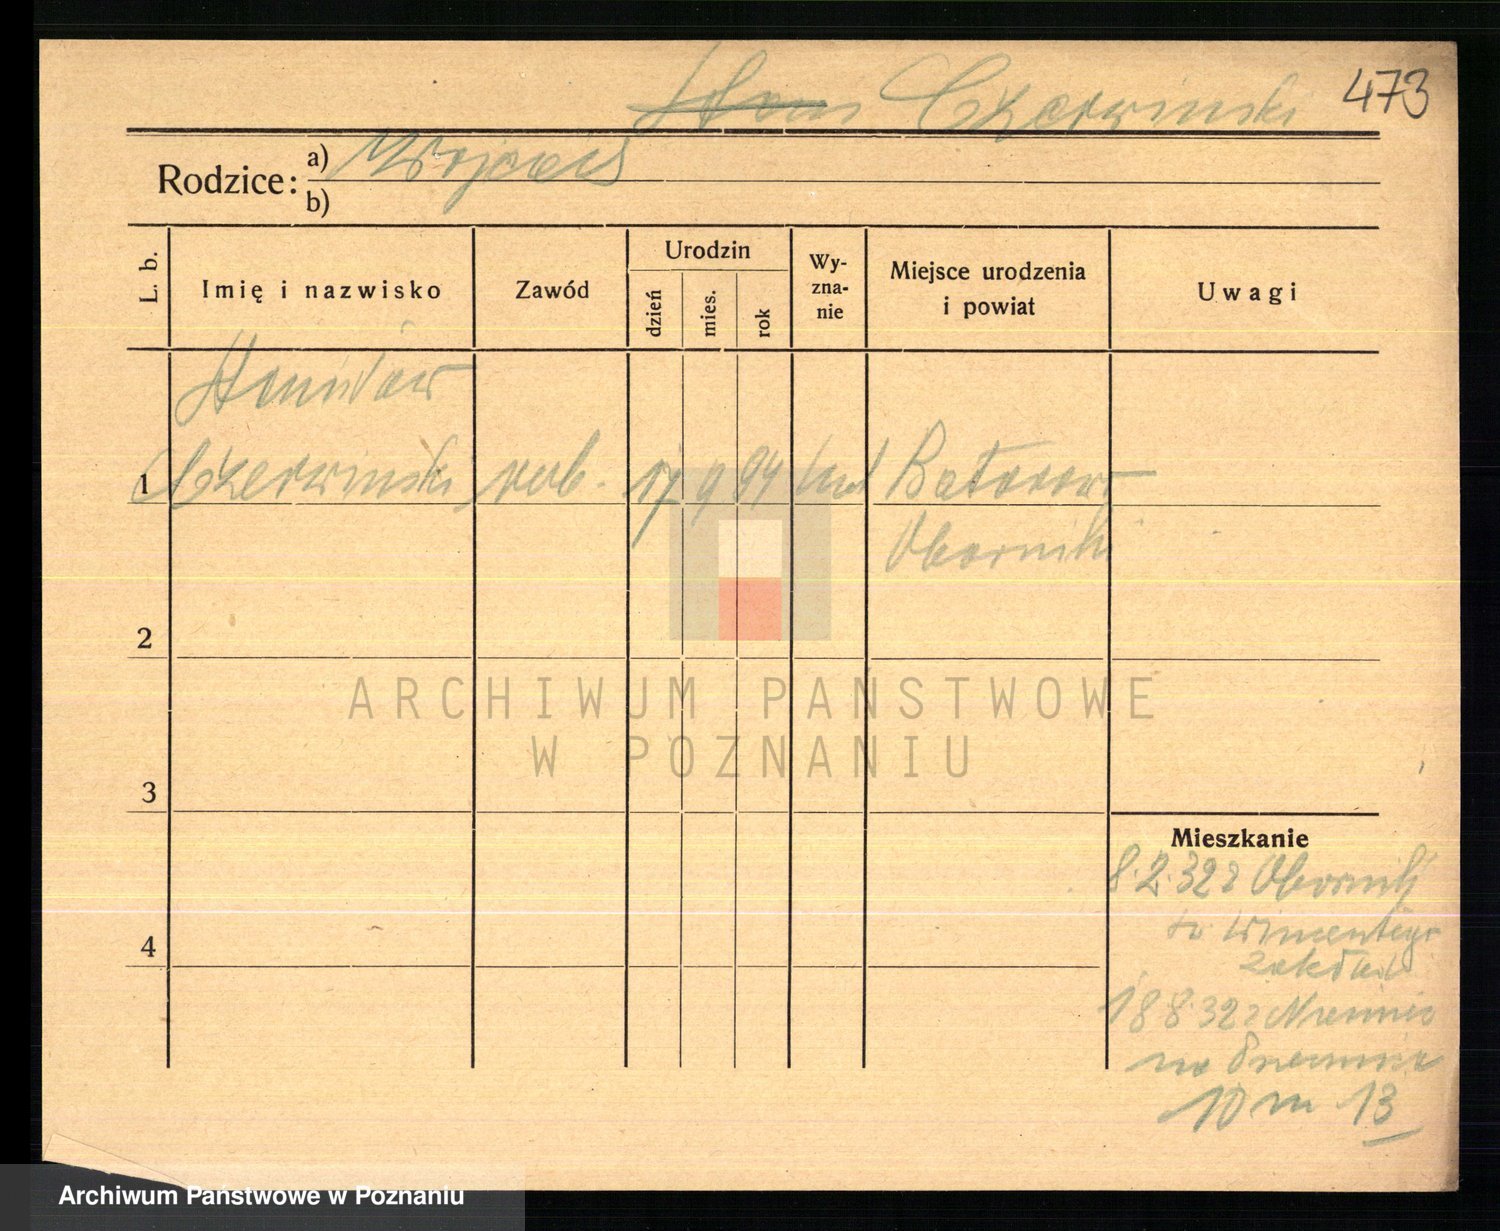 Stan Czerwinski 473
Rodzice: a) Wojciech
b)
L. b. Imię i nazwisko Zawód Urodzin dzień mies. rok Wy-zna-nie Miejsce urodzenia i powiat Uwagi
Stanisław
1 Czerwinski rob. 17 9 94 kat Batorowo
Oborniki
2
ARCHIWUM PANSTWOWE
W POZNANIU
3
Mieszkanie
8.2.32 Oborniki
Wincentego
4
18 8.32
na
10 m 13
Archiwum Państwowe w Poznaniu